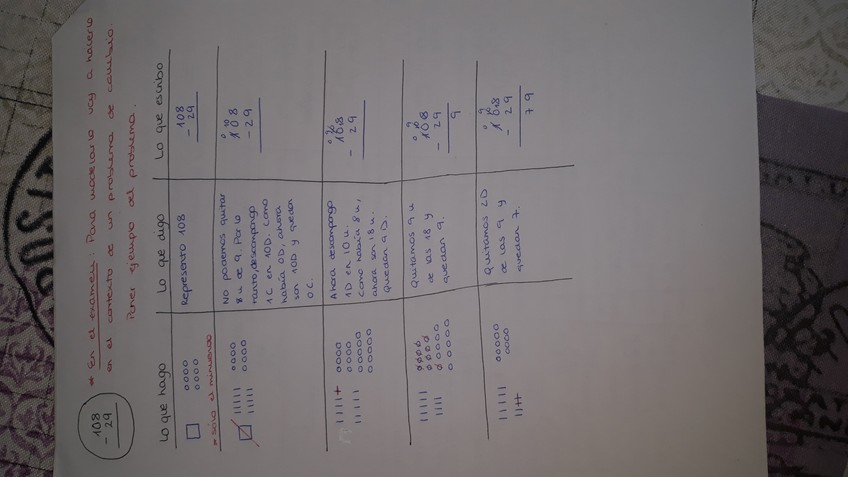 108
- 29
* En el examen: Para modelarlo voy a hacerlo
en el contexto de un problema de cambio.
Poner ejemplo del problema.
Lo que hago
Lo que digo
Lo que escribo
* Solo el minuendo
Represento 108
108
- 29
No podemos quitar
8 u de 9. Por lo
tanto, descompongo
1C en 10D. Como
había 0D, ahora
son 10D y quedan
0 C.
0 10
108
- 29
Ahora descompongo
1D en 10 u.
Como había 8 u,
ahora son 18 u.
Quedan 9 D.
108
- 29
Quitamos 9 u
de las 18 y
quedan 9.
0 10 9
108
- 29
9
Quitamos 2D
de las 9 y
quedan 7.
0 9
108
- 29
79